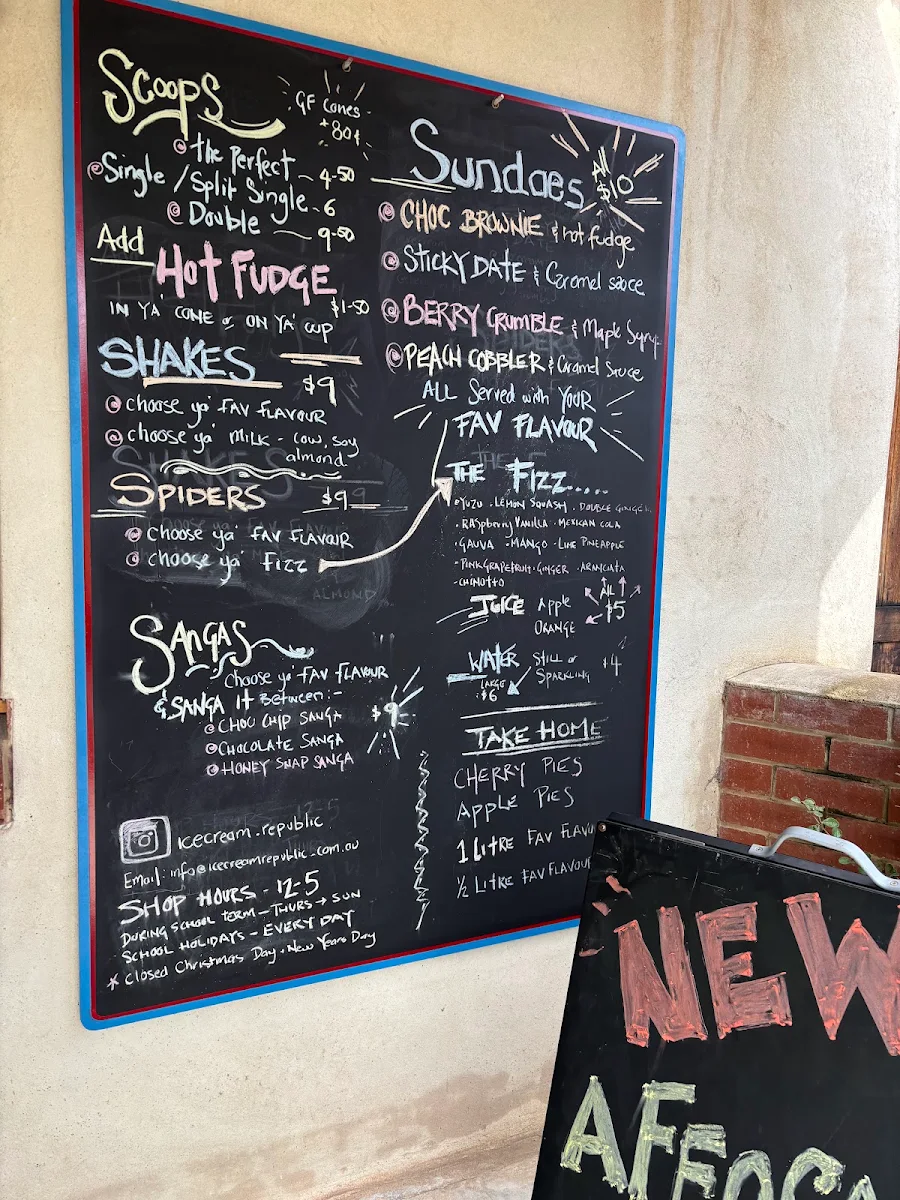 Scoops
GF Cones
+80¢
The Perfect
Single - 4-50
/Split Single - 6
Double - 9-50
Add
HOT FUDGE
$1-50
IN YA' CONE or ON YA' CUP
SHAKES $9
choose ya' FAV FLAVOUR
choose ya' MILK - COW, SOY
almond
SPIDERS $9
choose ya' FAV FLAVOUR
choose ya' FIZZ
SANGAS
Choose ya' FAV FLAVOUR
& SANGA IT Between:-
$9
CHOC CHIP SANGA
CHOCOLATE SANGA
HONEY SNAP SANGA
icecream.republic
Email: info@icecreamrepublic.com.au
SHOP HOURS - 12-5
DURING SCHOOL TERM - THURS → SUN
SCHOOL HOLIDAYS - EVERY DAY
* Closed Christmas Day + New Years Day
Sundaes
All $10
CHOC BROWNIE & hot fudge
STICKY DATE & Caramel sauce
BERRY CRUMBLE & Maple Syrup
PEACH COBBLER & Caramel Sauce
ALL Served with YOUR
FAV FLAVOUR
THE FIZZ.....
YUZU . LEMON SQUASH . DOUBLE GINGER
. RASpberry Vanilla . MEXICAN COLA
. GAUVA . MANGO . LIME PINEAPPLE
- PINK GRAPEFRUIT . GINGER . ARANCIATA
- CHINOTTO
ALL
$5
JUICE Apple
ORANGE
WATER STILL or
SPARKLING $4
LARGE
$6
TAKE HOME
CHERRY PIES
APPLE PIES
1 LITRE FAV FLAVOU
½ LITRE FAV FLAVOUR
NEW
AFFOGA